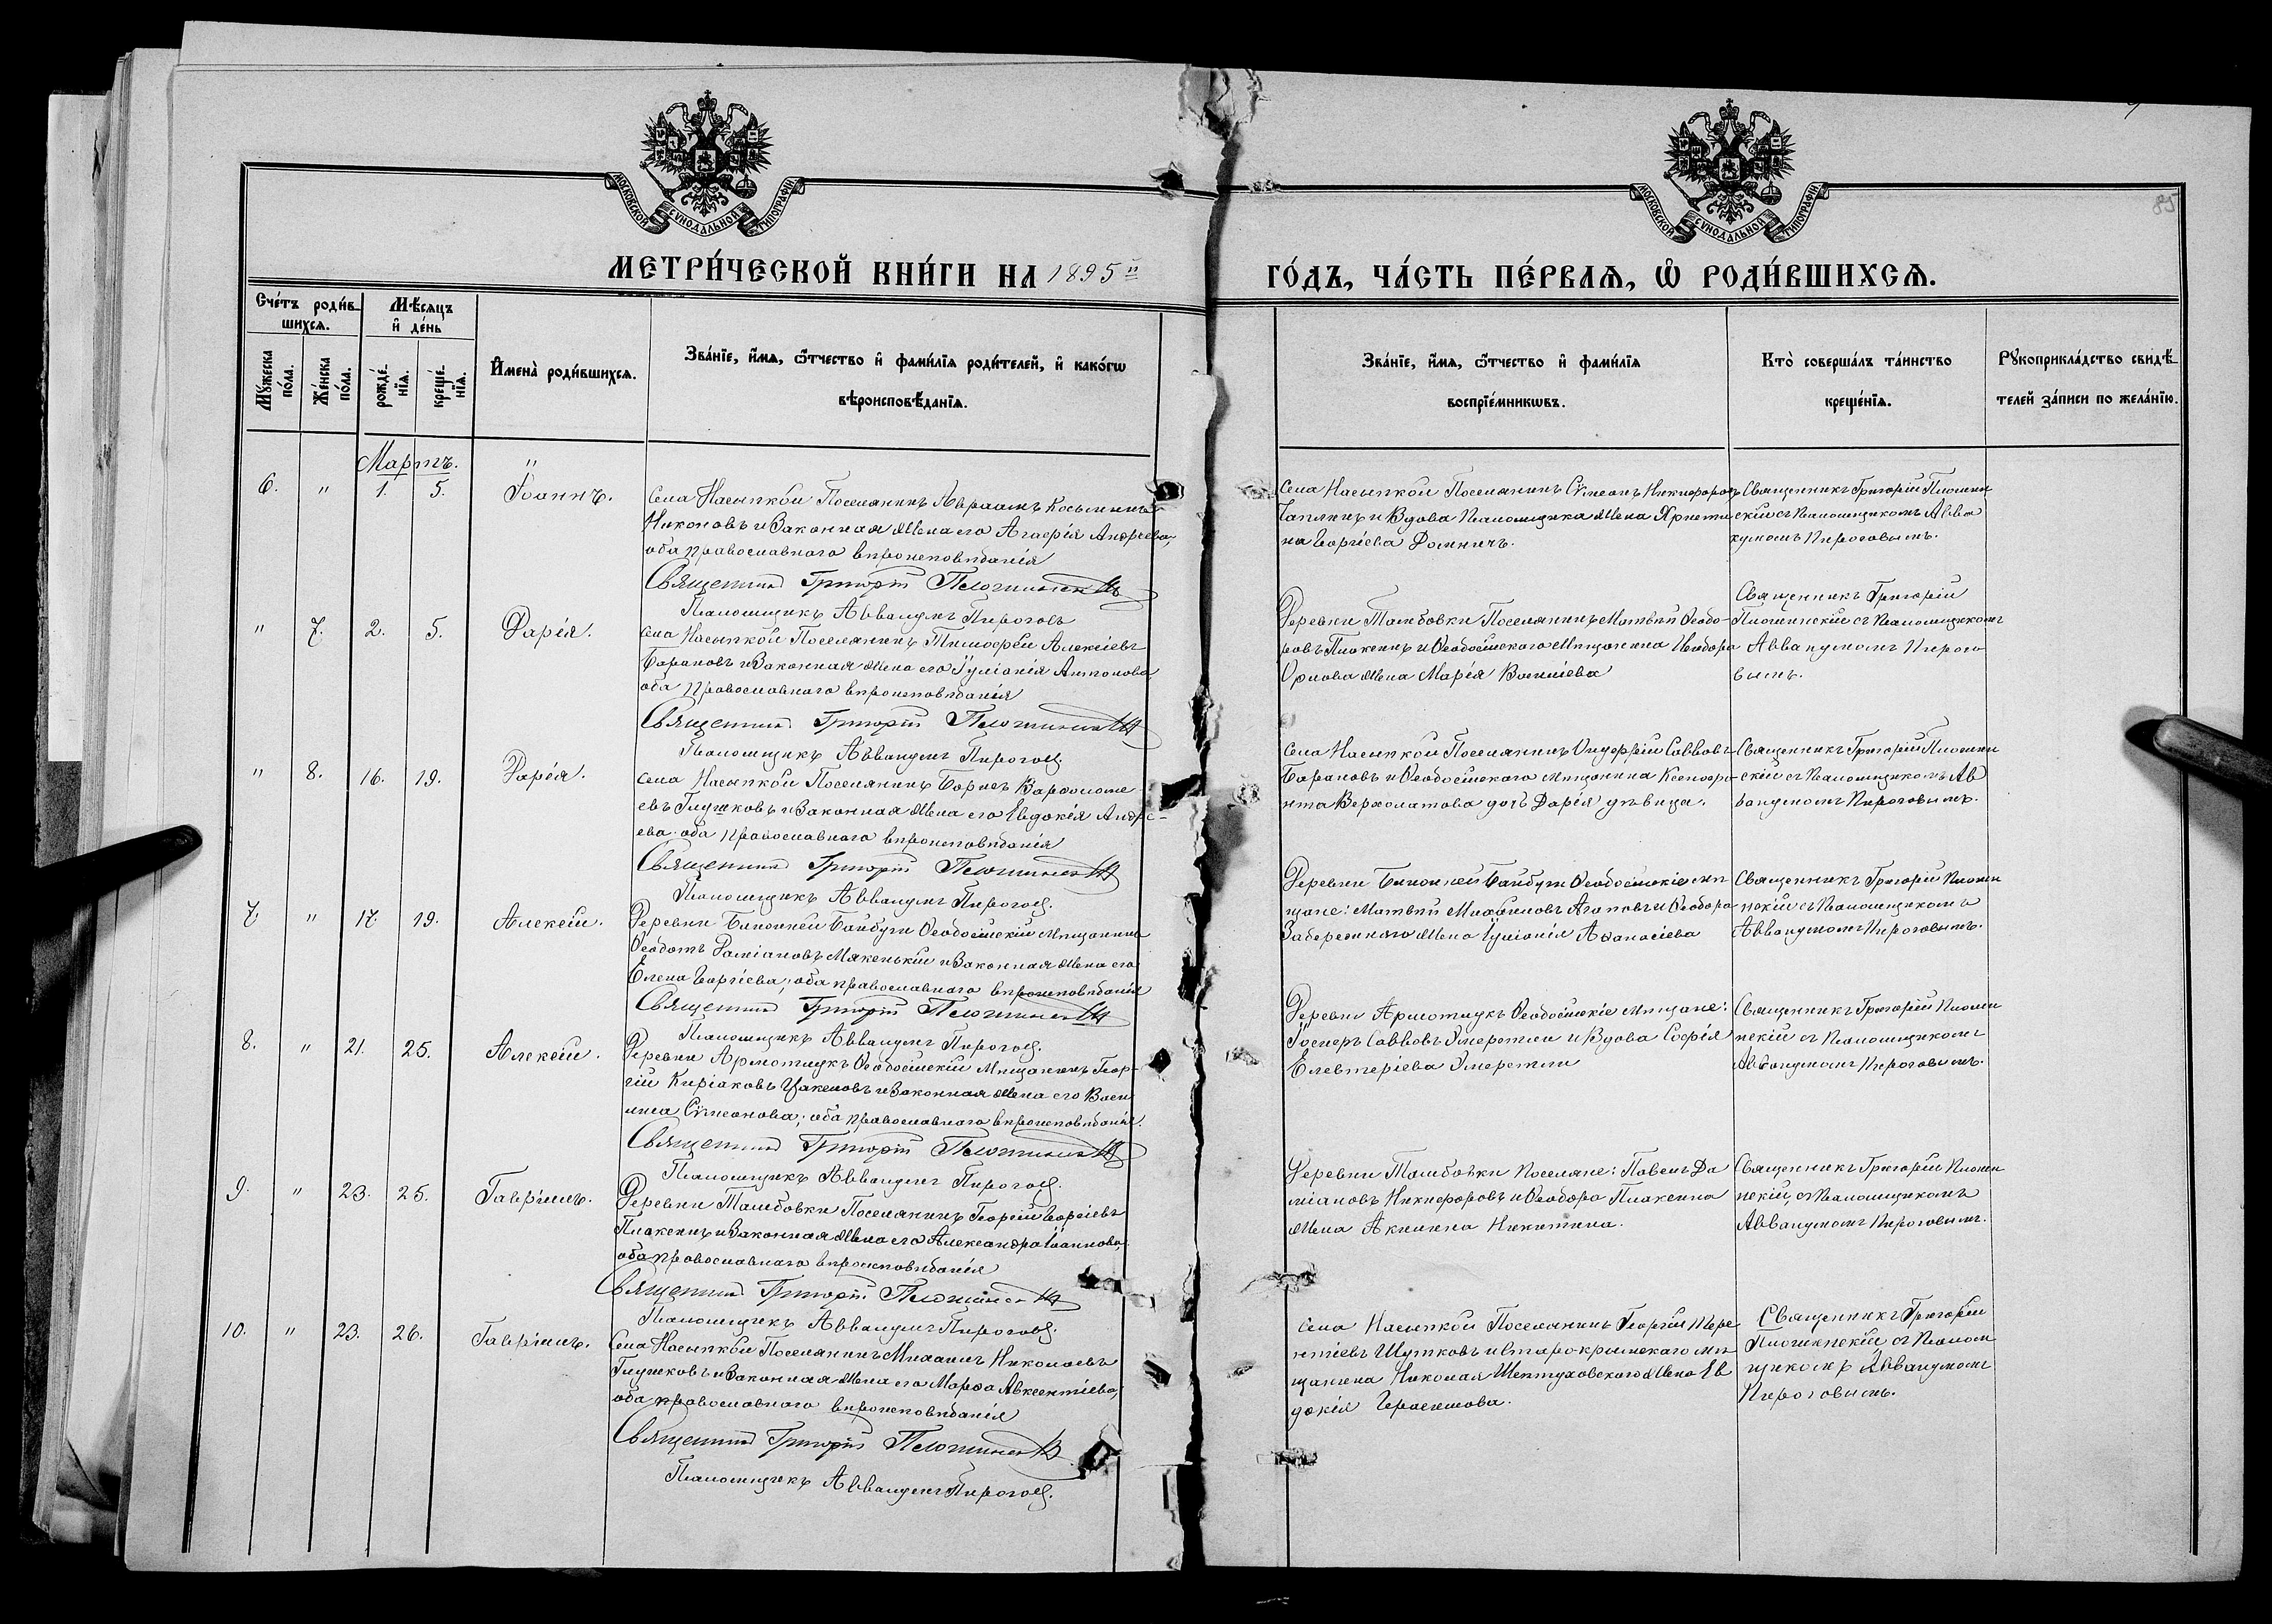 МОСКОВСКОЙ СУНОДАЛЬНОЙ ТИПОГРАФІИ
МОСКОВСКОЙ СУНОДАЛЬНОЙ ТИПОГРАФІИ
85
МЕТРИ́ЧЕСКОЙ КНИ́ГИ НА 1895й ГО́ДЪ, ЧА́СТЬ ПЕ́РВАѦ, Ѡ РОДИ́ВШИХСѦ.
Сче́тъ роди́в-
шихсѧ.
Мꙋжеска по́ла.
Же́нска по́ла.
Мѣ́сѧцъ
и де́нь
рожде́нїѧ.
креще́нїѧ.
Имена̀ роди́вшихсѧ.
Зва́нїе, и́мѧ, ѻ́тчество и фами́лїѧ роди́телей, и како́гѡ
вѣроисповѣ́данїѧ.
Зва́нїе, и́мѧ, ѻ́тчество и фами́лїѧ
воспрїе́мникѡвъ.
Кто̀ соверша́лъ та́инство
креще́нїѧ.
Рꙋкоприкла́дство свидѣ́-
телей за́писи по жела́нїю.
Мартъ.
6. " 1. 5. Іоаннъ.
Села Насыпкой Поселянинъ Авраамъ Косьминъ
Никоновъ и Законная Жена его Агафія Андреева,
оба православнаго вѣроисповѣданія
Священникъ Григорій
Псаломщикъ Аввакумъ Пироговъ
Села Насыпкой Поселянинъ Сѵмеонъ Никифоровъ
и Вдова Псаломщика Жена
на Георгіева
Священникъ Григорій
скій съ Псаломщикомъ Авва
кумомъ Пироговымъ.
" 7. 2. 5. Дарія.
Села Насыпкой Поселянинъ Тимофей Алексіевъ
Барановъ и Законная Жена его Іуліанія Антонова
оба православнаго вѣроисповѣданія
Священникъ Григорій
Псаломщикъ Аввакумъ Пироговъ.
Деревни Тамбовки Поселянинъ Матвій Ѳеодо-
ровъ Плаксинъ и Ѳеодосійскаго Мѣщанина Ѳеодора
Орлова Жена Марія Васильева
Священникъ Григорій
съ Псаломщикомъ
Аввакумомъ Пирого
вымъ.
" 8. 16. 19. Дарія.
Села Насыпкой Поселянинъ Борисъ Варѳоломе
евъ Глушковъ и Законная Жена его Евдокія Андре-
ева оба православнаго вѣроисповѣданія
Священникъ Григорій
Псаломщикъ Аввакумъ Пироговъ.
Села Насыпкой Поселянинъ Онуфрій Саввовъ
Барановъ и Ѳеодосійскаго мѣщанина Ксенофо
нта дочь Дарія дѣвица.
Священникъ Григорій
скій съ Псаломщикомъ Ав
вакумомъ Пироговымъ.
7. " 17. 19. Алексій.
Деревни Ближней Байбуги Ѳеодосійскій Мѣщанинъ
Ѳеодотъ Даміановъ Мякенькій и Законная Жена его
Елена Георгіева; оба православнаго вѣроисповѣданія
Священникъ Григорій
Псаломщикъ Аввакумъ Пироговъ.
Деревни Ближней Байбуги Ѳеодосійскіе мѣ
щане: Матвій Агаповъ и Ѳеодора
Забережнаго Жена Іуліанія Аѳанасіева
Священникъ Григорій
нскій съ Псаломщикомъ
Аввакумомъ Пироговымъ.
8. " 21. 25. Алексій.
Деревни Армотлукъ Ѳеодосійскій Мѣщанинъ Геор-
гій Киріаковъ и Законная Жена его Васи
лиса Сѵмеонова; оба православнаго вѣроисповѣданія.
Священникъ Григорій
Псаломщикъ Аввакумъ Пироговъ.
Деревни Армотлукъ Ѳеодосійскіе мѣщане:
Саввовъ и Вдова Софія
Елевтеріева
Священникъ Григорій
нскій съ Псаломщикомъ
Аввакумомъ Пироговымъ.
9. " 23. 25. Гавріилъ.
Деревни Тамбовки Поселянинъ Георгій Георгіевъ
Плаксинъ и Законная Жена его Александра Іоаннова,
оба православнаго вѣроисповѣданія
Священникъ Григорій
Псаломщикъ Аввакумъ Пироговъ.
Деревни Тамбовки Поселяне: Павелъ Да
міановъ Никифоровъ и Ѳеодора Плаксина
Жена Акилина Никитина.
Священникъ Григорій
нскій, съ Псаломщикомъ
Аввакумомъ Пироговымъ.
10. " 23. 26. Гавріилъ.
Села Насыпкой Поселянинъ Михаилъ Николаевъ
Глушковъ и Законная Жена его Марѳа Авксентіева,
оба православнаго вѣроисповѣданія
Священникъ Григорій
Псаломщикъ Аввакумъ Пироговъ.
Села Насыпкой Поселянинъ Георгій Тере
нтіевъ Шутковъ и Старокрымскаго мѣ
щанина Николая Шептуховскаго Жена Ев
докія Герасимова.
Священникъ Григорій
съ Псалом
щикомъ Аввакумомъ
Пироговымъ.